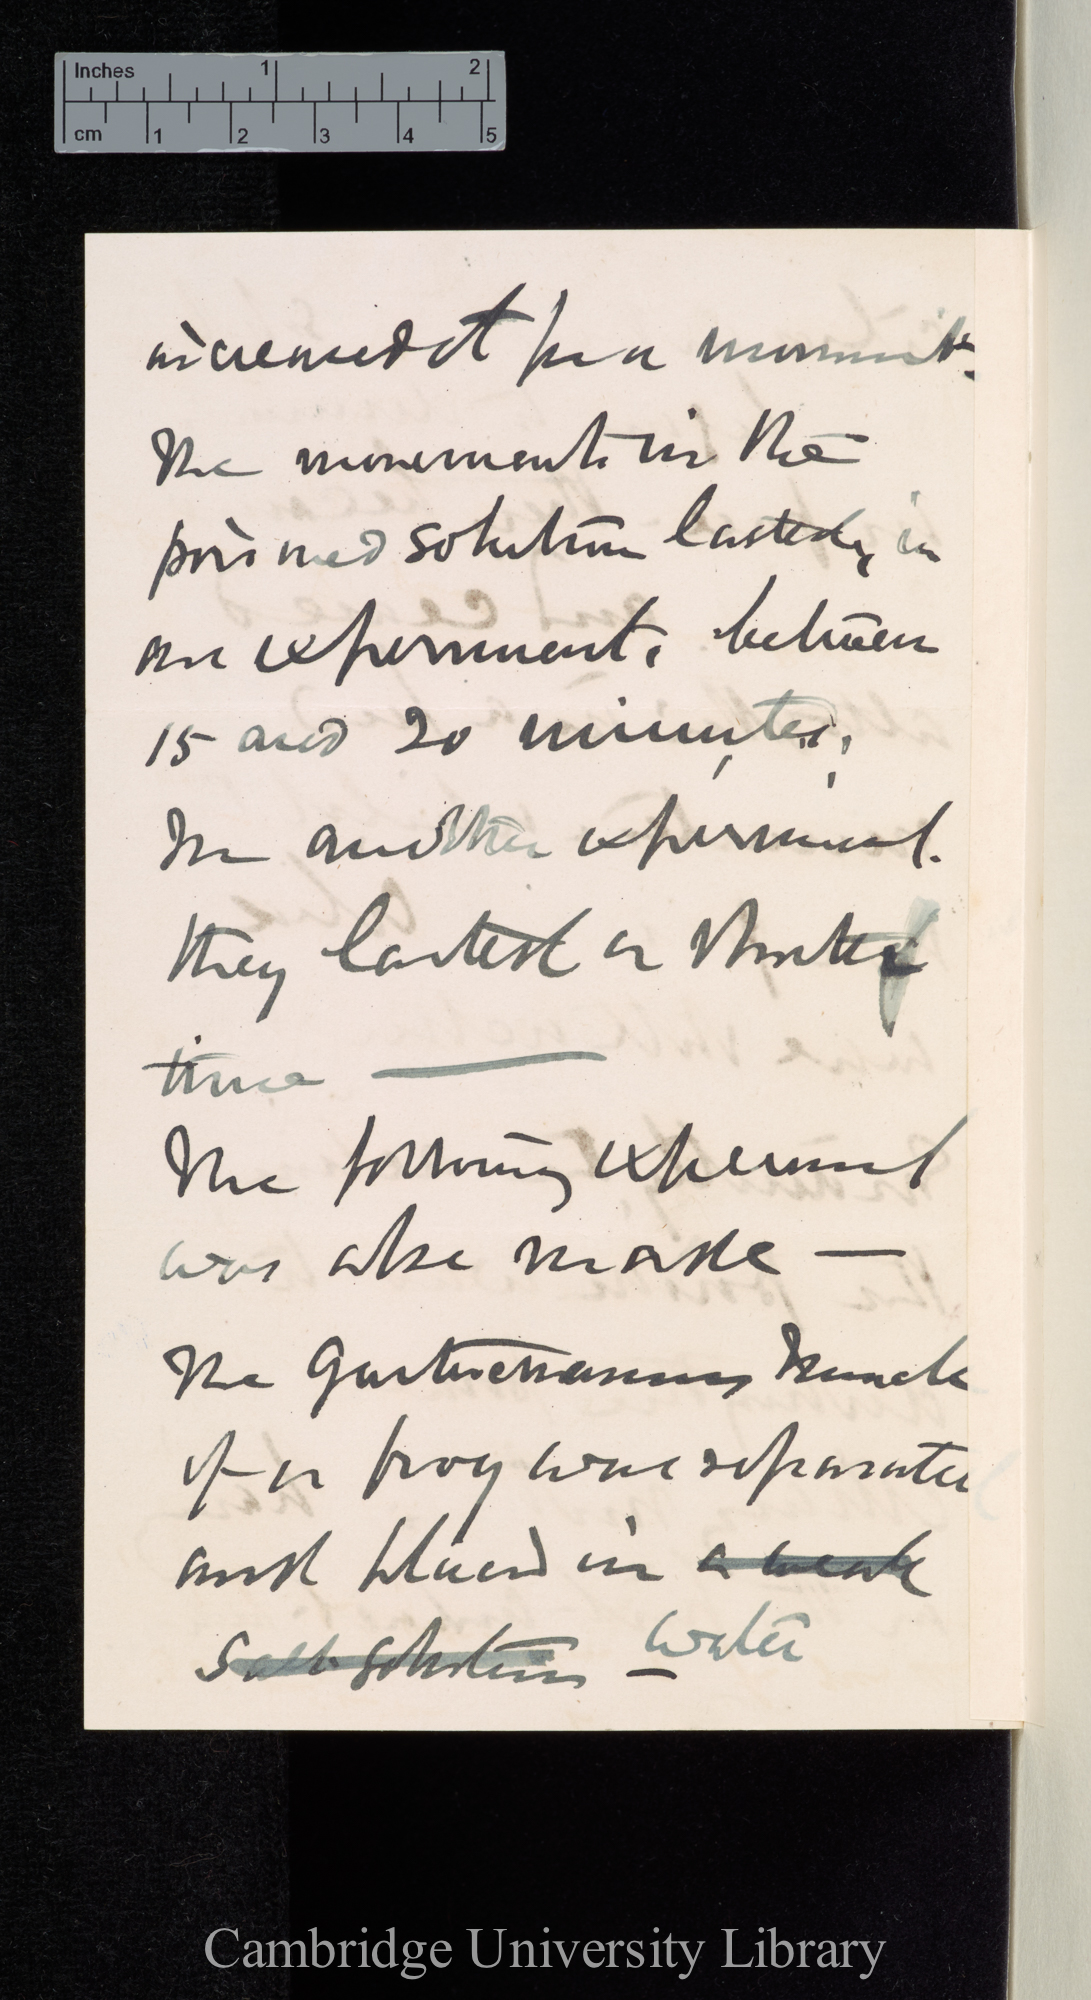 Inches 1 2
cm 1 2 3 4 5
increased it for a moment.
The movements in the
poisoned solution lasted, in
an experiment, between
15 and 20 minutes,
In another experiment.
they lasted a shorter
time —
The following experiment
was also made —
The Gastrocnemius muscle
of a frog was separated
and placed in a weak
salt solution – water
Cambridge University Library